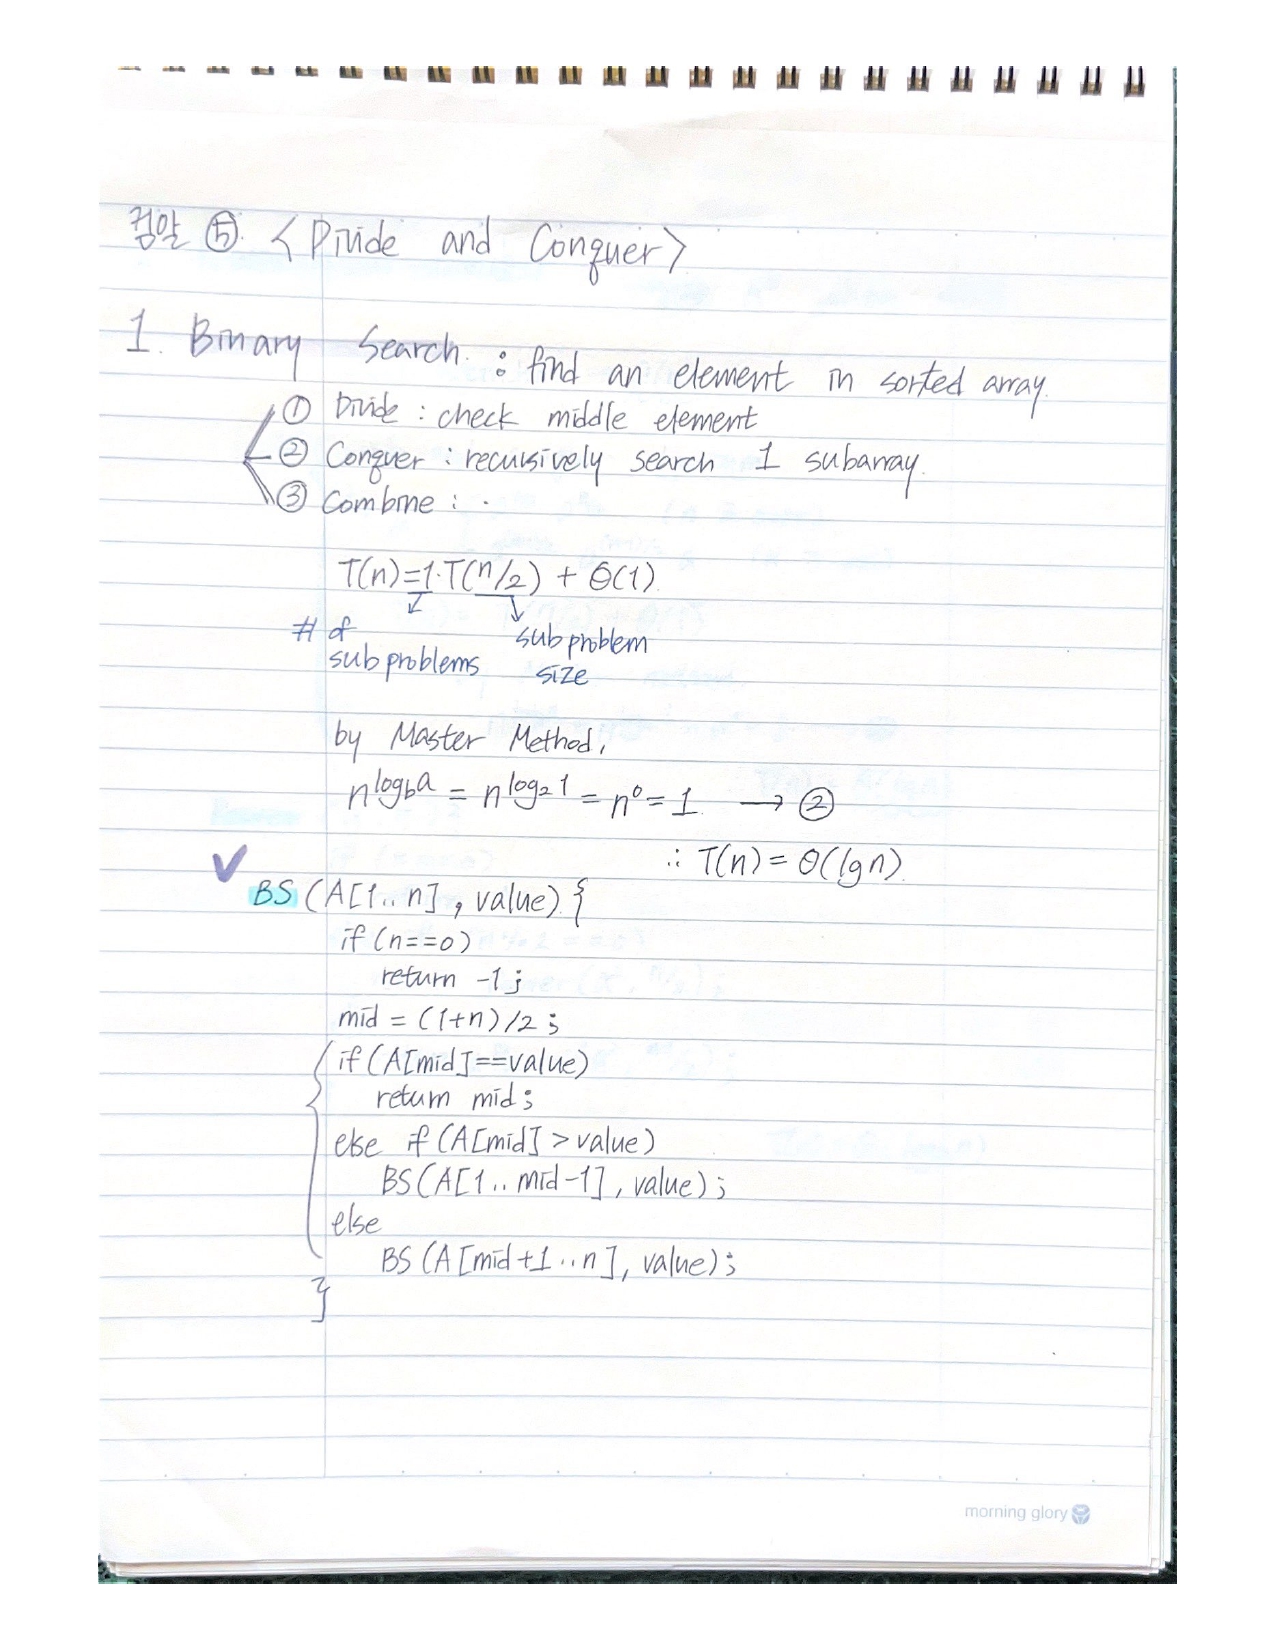 컴알 ⑤. <Divide and Conquer>
1. Binary Search. : find an element in sorted array.
① Divide : check middle element
② Conquer : recursively search 1 subarray.
③ Combine : ·
T(n)=1·T(n/2) + Θ(1).
# of subproblems
subproblem size
by Master Method,
n^log_b a = n^log_2 1 = n^0 = 1. → ②
∴ T(n) = Θ(lg n).
✓
BS (A[1..n], value) {
if (n==0)
return -1;
mid = (1+n)/2;
if (A[mid]==value)
return mid;
else if (A[mid] > value)
BS(A[1..mid-1], value);
else
BS (A[mid+1..n], value);
}
morning glory